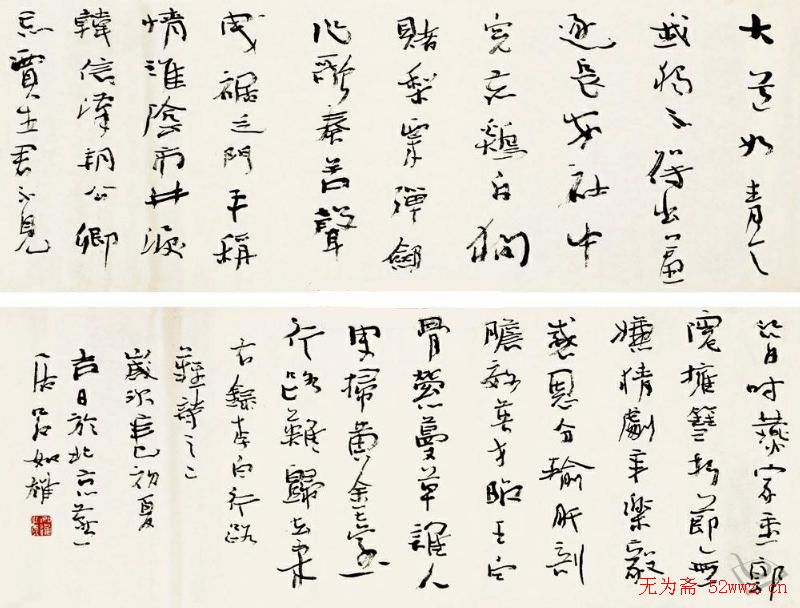 大道如青天
我獨不得出羞
逐長安社中
兒赤鷄白狗
賭梨栗彈劍
作歌奏苦聲
曳裾王門不稱
情淮陰市井笑
韓信漢朝公卿
忌賈生君不見
昔時燕家重郭
隗擁篲折節無
嫌猜劇辛樂毅
感恩分輸肝剖
膽效英才昭王白
骨縈蔓草誰人
更掃黃金臺
行路難歸去來
右錄李白行路
難詩之二
歲次辛巳初夏
吉日於北京燕
居 如雄
无为斋-52wwz.cn